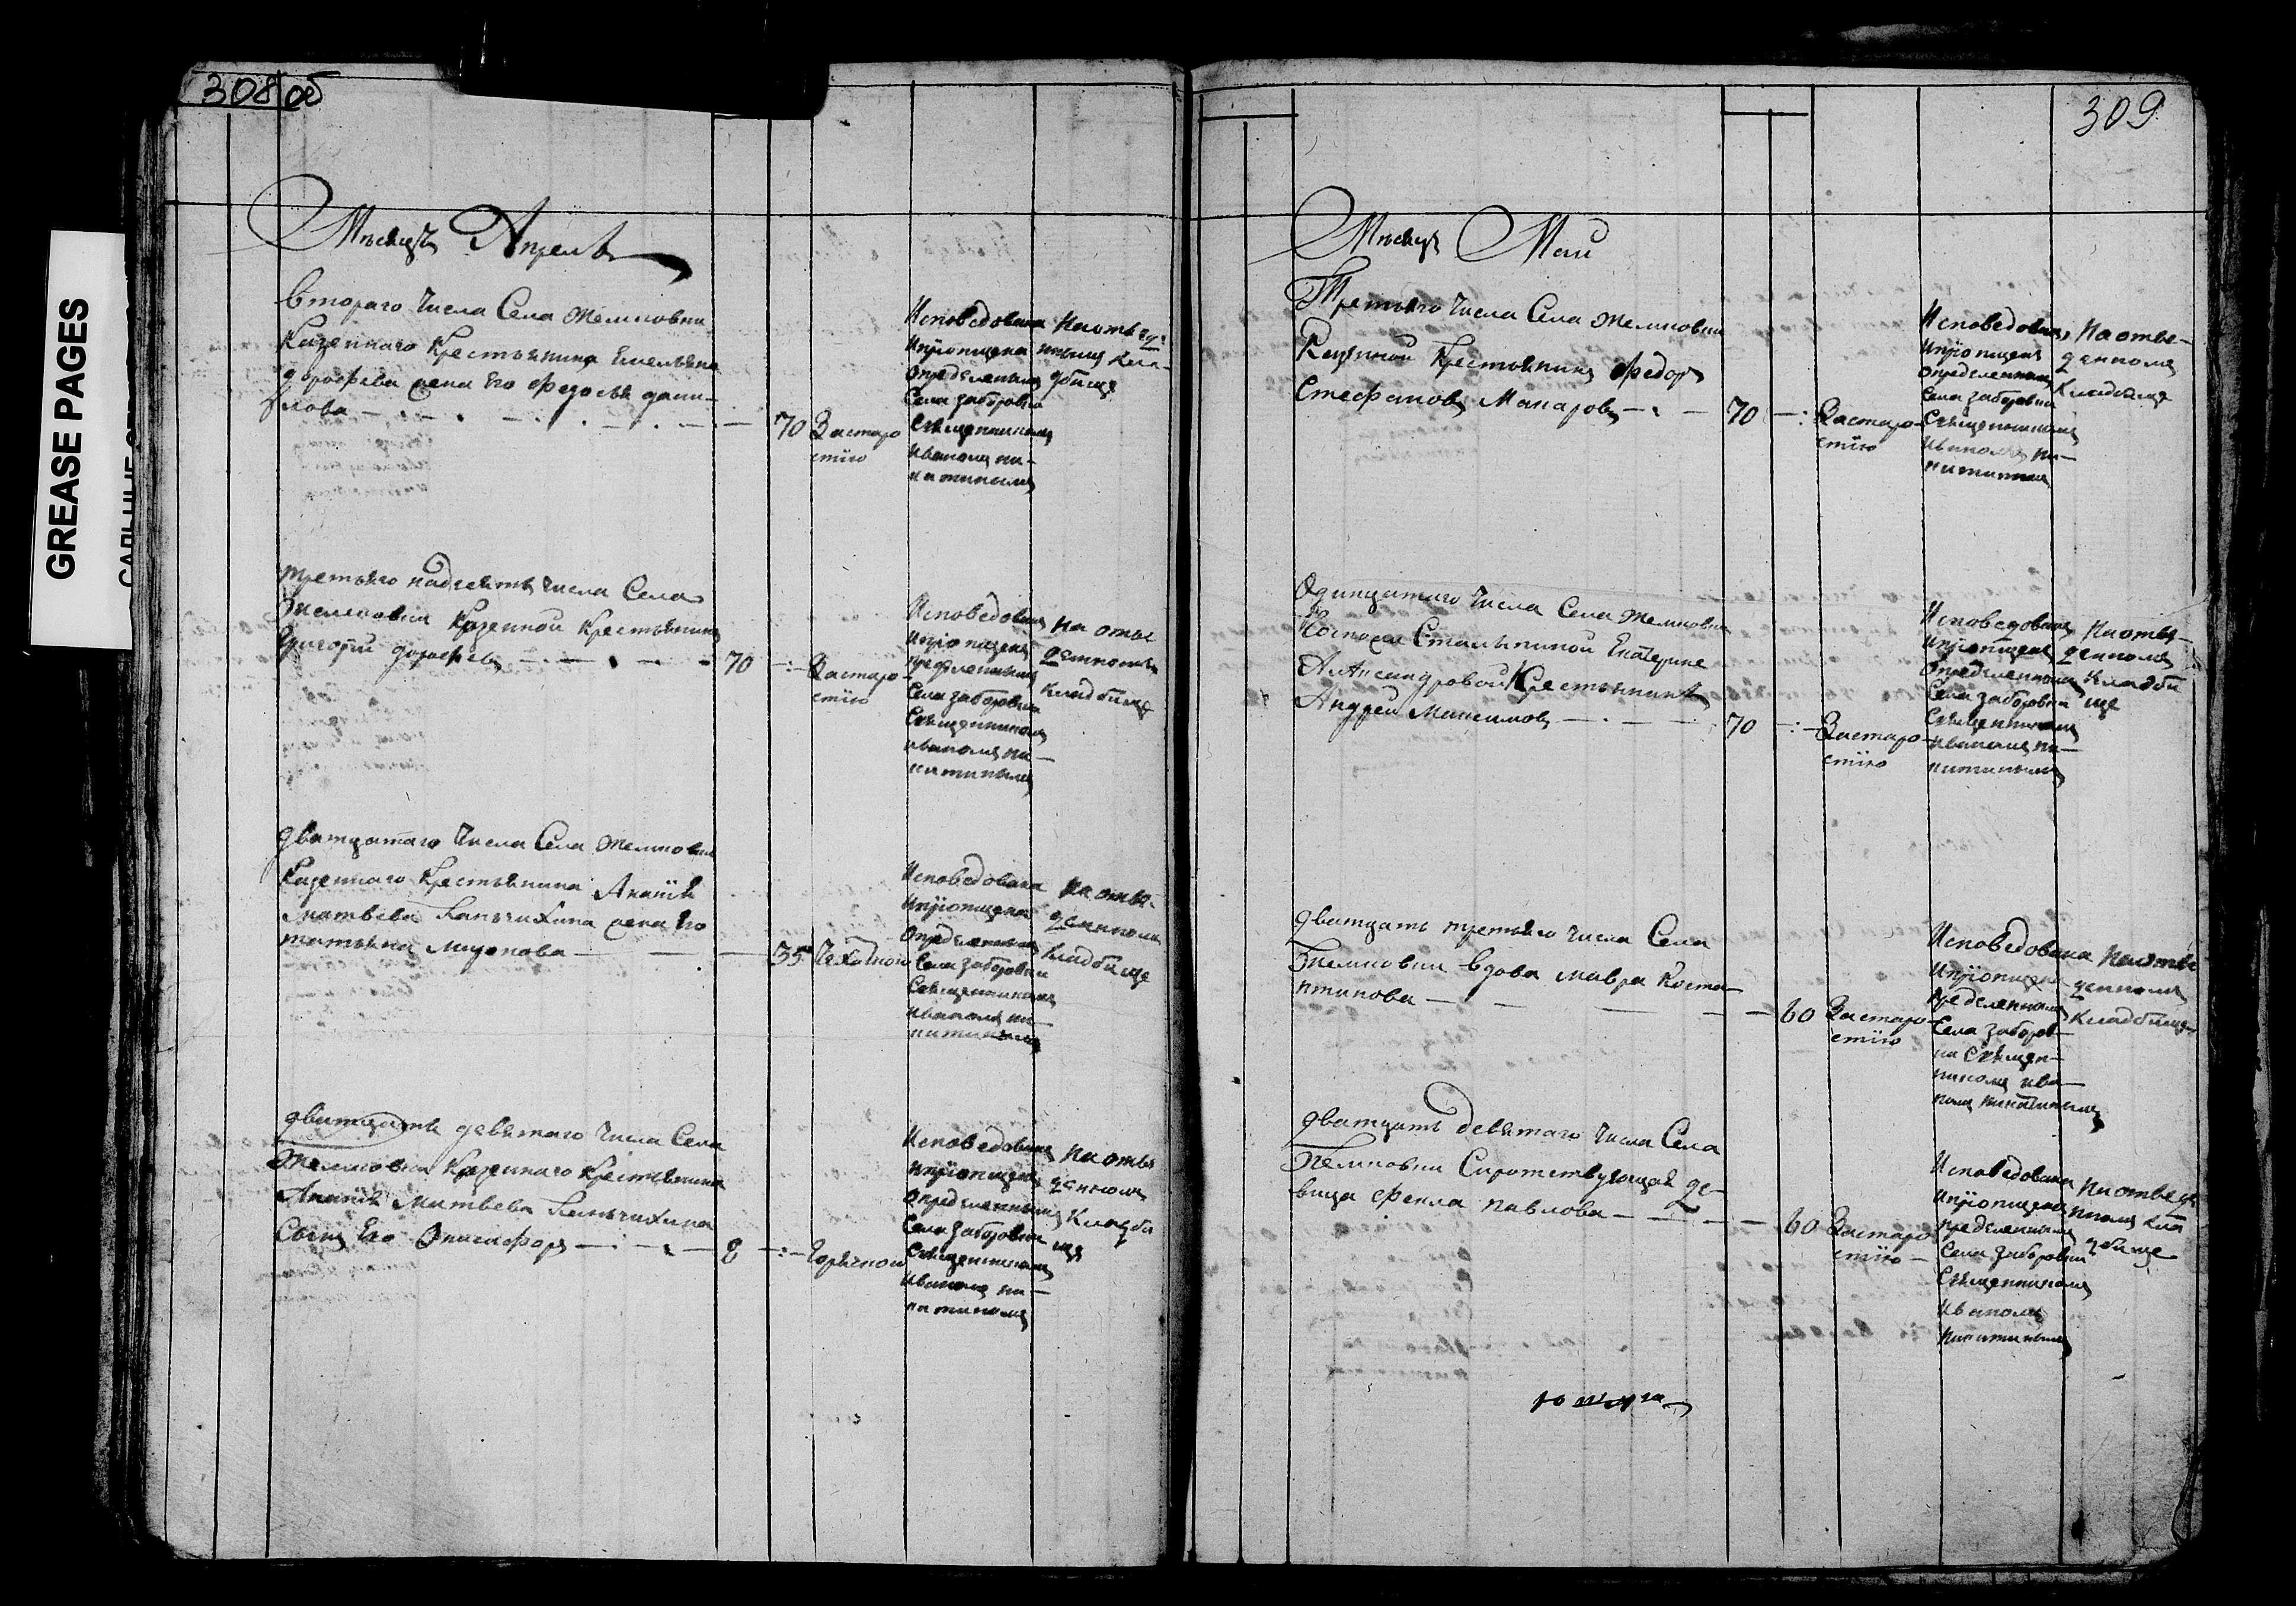 308 об
GREASE PAGES
Месяцъ Апрель
втораго Числа Села Жемковки
Казеннаго Крестьянина Емельяна
дорофѣева жена Его Федосья дани-
лова
70
За старо
стїю
Исповедована
и прїопщена
определенным
Села заборовки
Священником
Иваном ни-
китиным
На отвед:
нным кла-
дбище
третьяго надесять Числа Села
Жемковки Казенной Крестьянин
Григорїй дорофѣев
70
За старо
стїю
Исповедован
и прїопщен
пределенным
Села заборовки
Священником
Иваном ни-
китиным
На отве
денном
кладбище
дватцатаго Числа Села Жемковки
Казеннаго Крестьянина Ананїя
матвѣева жена Его
татьяна миронова
35
Чехоткою
Исповедована
и прїопщена
определенным
Села заборовки
Священником
Иваном ни-
китиным
На отве-
денном
кладбище
дватцать девятаго Числа Села
Жемковки Казеннаго Крестьянина
Ананїя Матвѣева
Сынъ Его Онисифоръ
8
Горячкой
Исповедован
и прїопщен
определенным
Села заборовки
Священником
Иваном ни-
китиным
На отве
денном
кладби
ще
309
Месяцъ Май
Третьяго Числа Села Жемковки
Казенной Крестьянин Федор
Стефанов Макаров
70
За старо-
стїю
Исповедован
и прїопщен
определенным
Села заборовки
Священником
Иваном ни-
китиным
На отве-
денном
Кладбище
Одинцатаго Числа Села Жемковки
Госпожи Столыпиной Екатерине
Александровой Крестьянин
Андрей Максимов
70
За старо-
стїю
Исповедован
и прїопщен
определенным
Села заборовки
Священником
Иваном ни-
китиным
На отве-
денном
кладби
ще
дватцать третьяго Числа Села
Жемковки вдова мавра Коста-
нтинова
60
За старо-
стїю
Исповедована
и прїопщена
пределенным
Села заборов-
ки Священ-
ником Ива-
ном никитиным
На отве
денном
Кладбище
дватцать девятаго Числа Села
Жемковки Сиротствующая де-
вица Фекла павлова
60
За старо
стїю
Исповедована
и прїопщена
пределенным
Села заборовки
Священником
Иваном
Никитиным
На отвед
нном кла
дбище